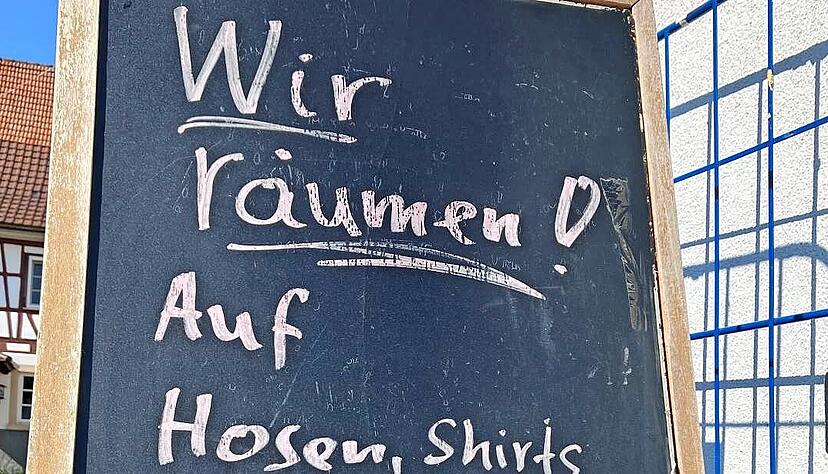 Wir
räumen!
Auf
Hosen, Shirts